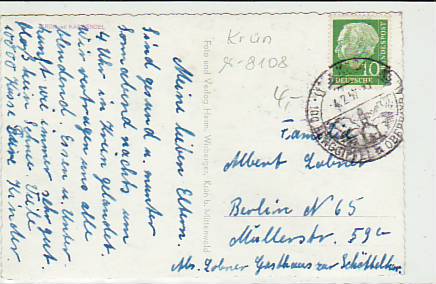 Meine lieben Eltern.
Sind gesund u. munter
Sonnabend nachts um
4 Uhr in Krün gelandet.
Wir vertragen uns alle
blendend. Essen u. Unter-
kunft wie immer sehr gut.
Bloß kein Schnee. Viele
10000 Küss Eure Kinder
Krün
8108
4,-
10
DEUTSCHE
Foto und Verlag Herm. Wetberger, Krün b. Mittenwald
Familie
Albert Lobner
Berlin N 65
Müllerstr. 59c
Abs. Lobner Gasthaus zur Schöttelkar